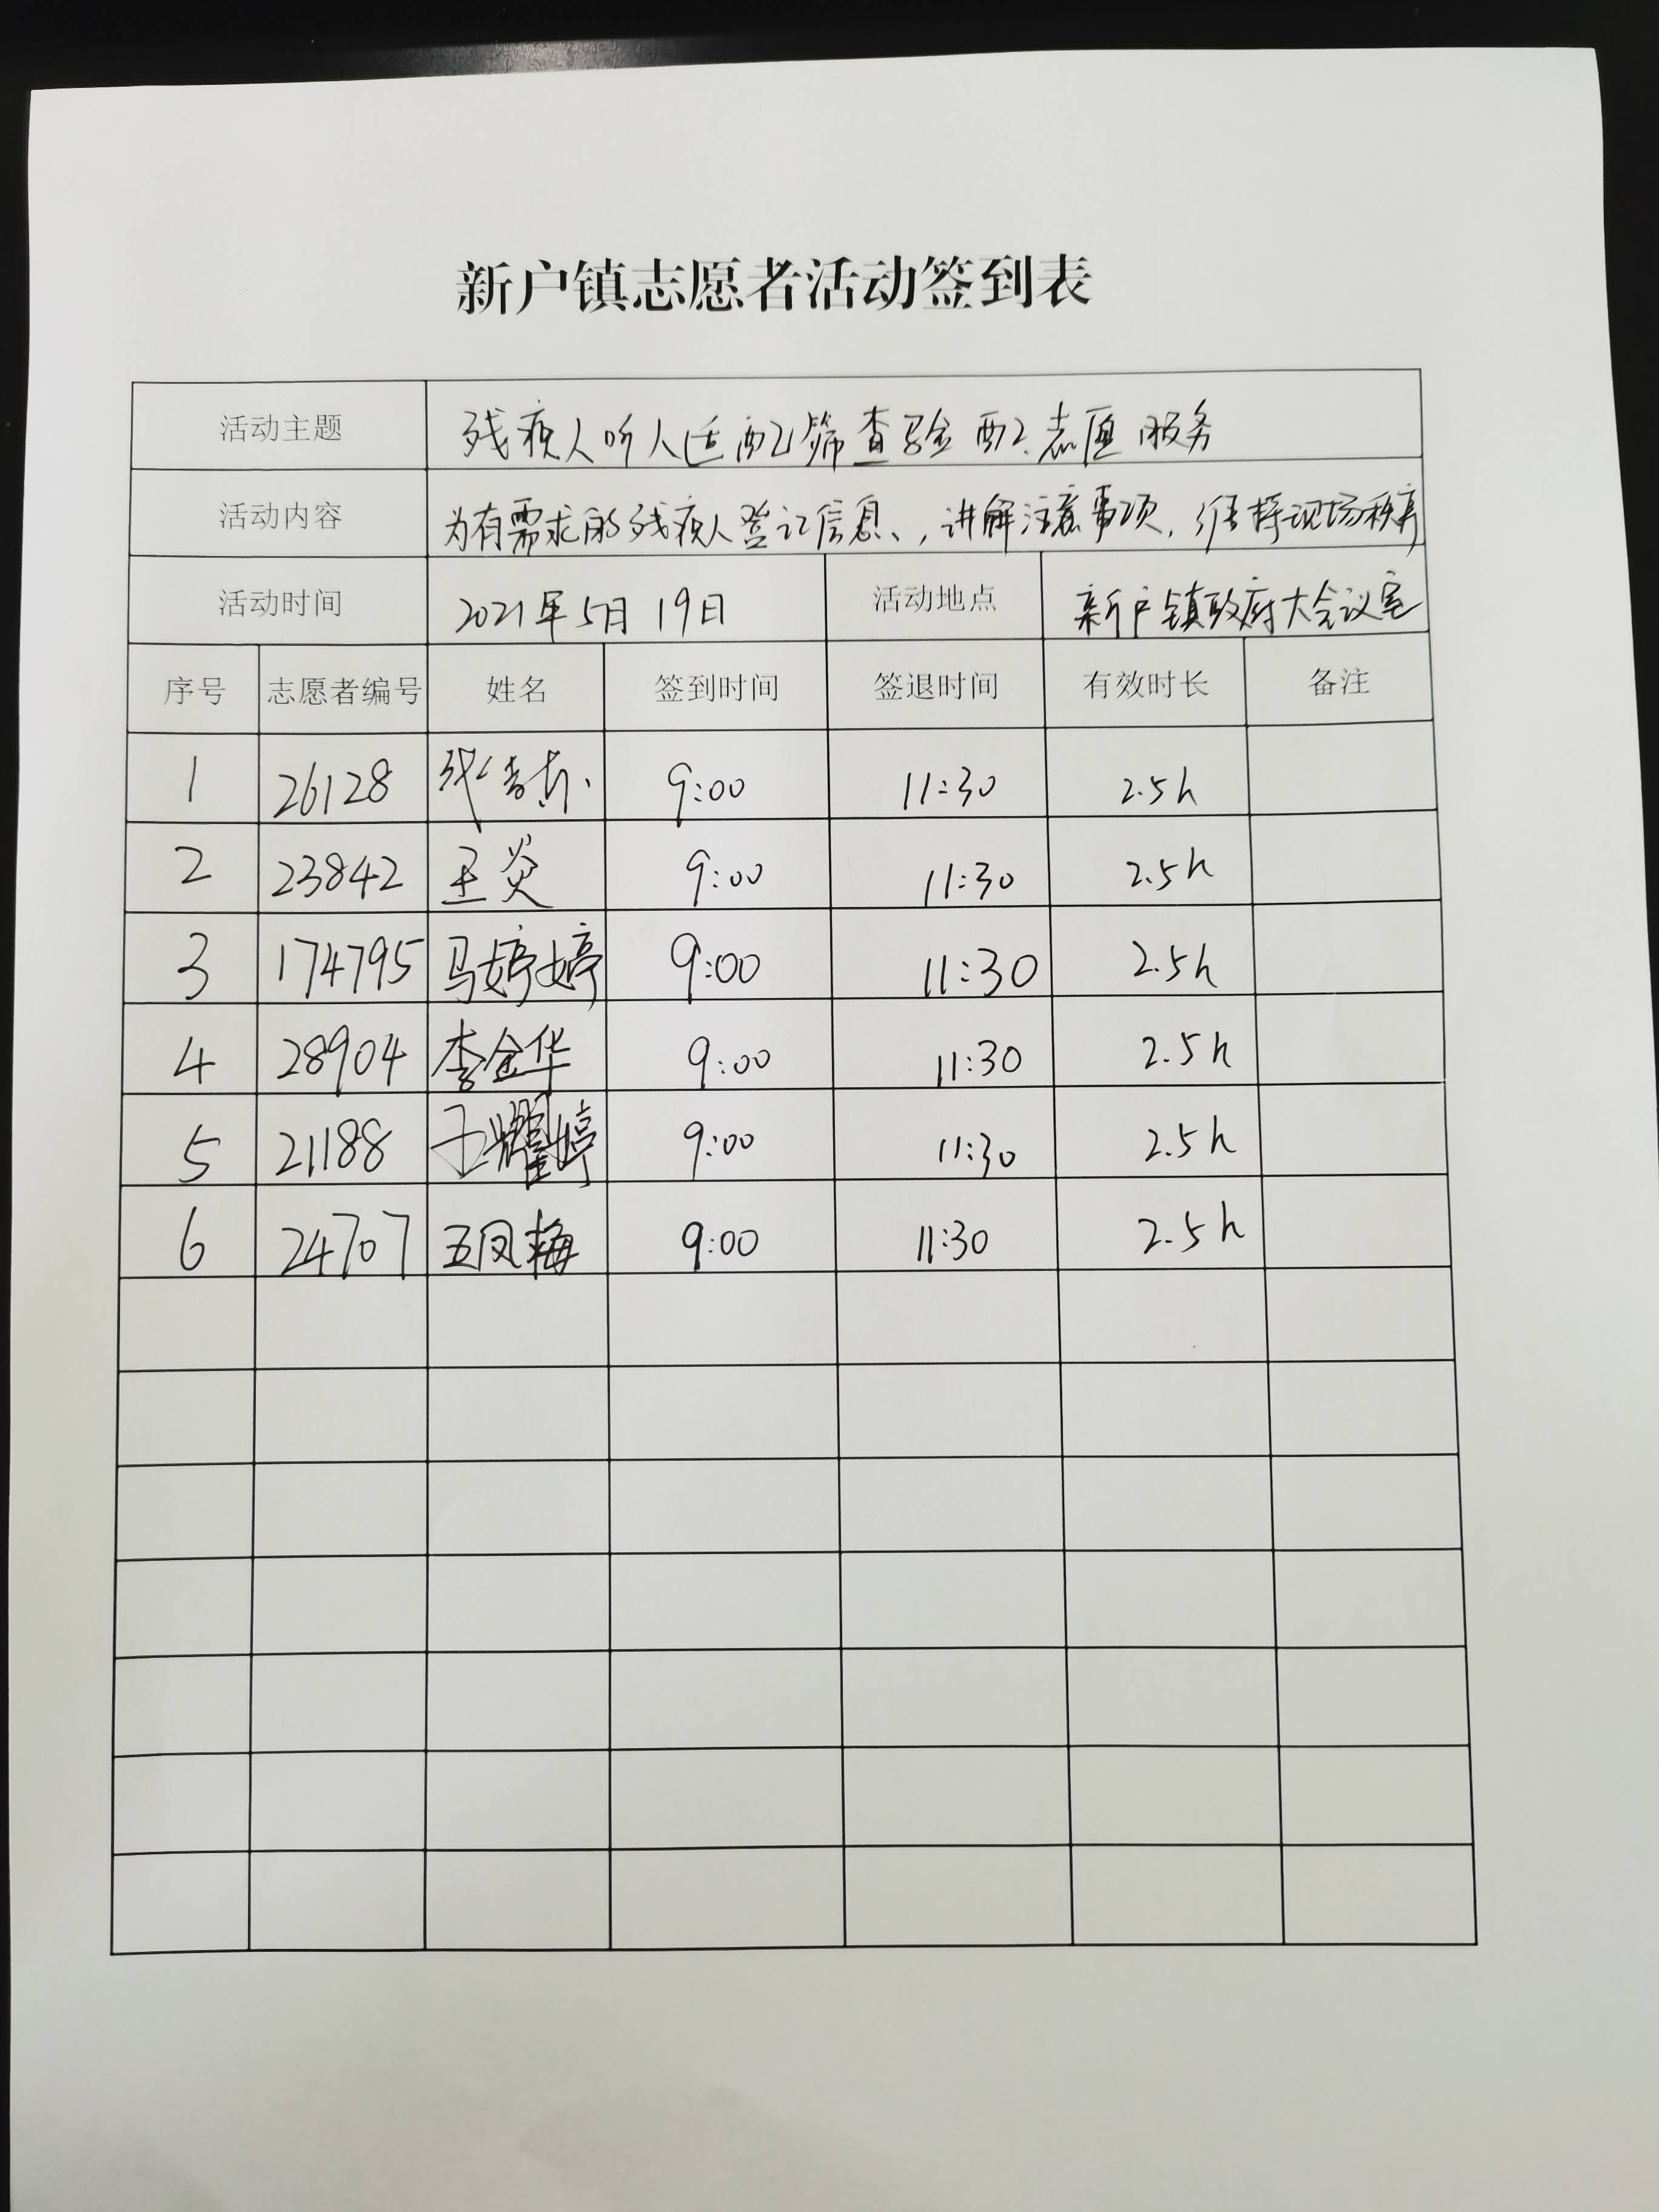 新户镇志愿者活动签到表
活动主题 残疾人听人适配筛查验配志愿服务
活动内容 为有需求的残疾人登记信息、,讲解注意事项,维持现场秩序
活动时间 2021年5月19日 活动地点 新户镇政府大会议室
序号 志愿者编号 姓名 签到时间 签退时间 有效时长 备注
1 26128 9:00 11:30 2.5h
2 23842 王炎 9:00 11:30 2.5h
3 174795 马婷婷 9:00 11:30 2.5h
4 28904 李金华 9:00 11:30 2.5h
5 21188 王耀婷 9:00 11:30 2.5h
6 24707 王凤梅 9:00 11:30 2.5h